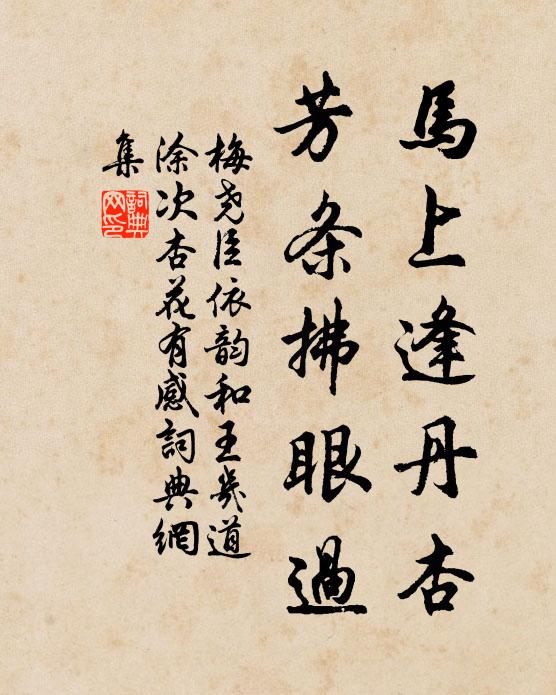 馬上逢丹杏
芳条拂眼過
梅尧臣依韵和王幾道
涂次杏花有感詞典網
集
詞典网印